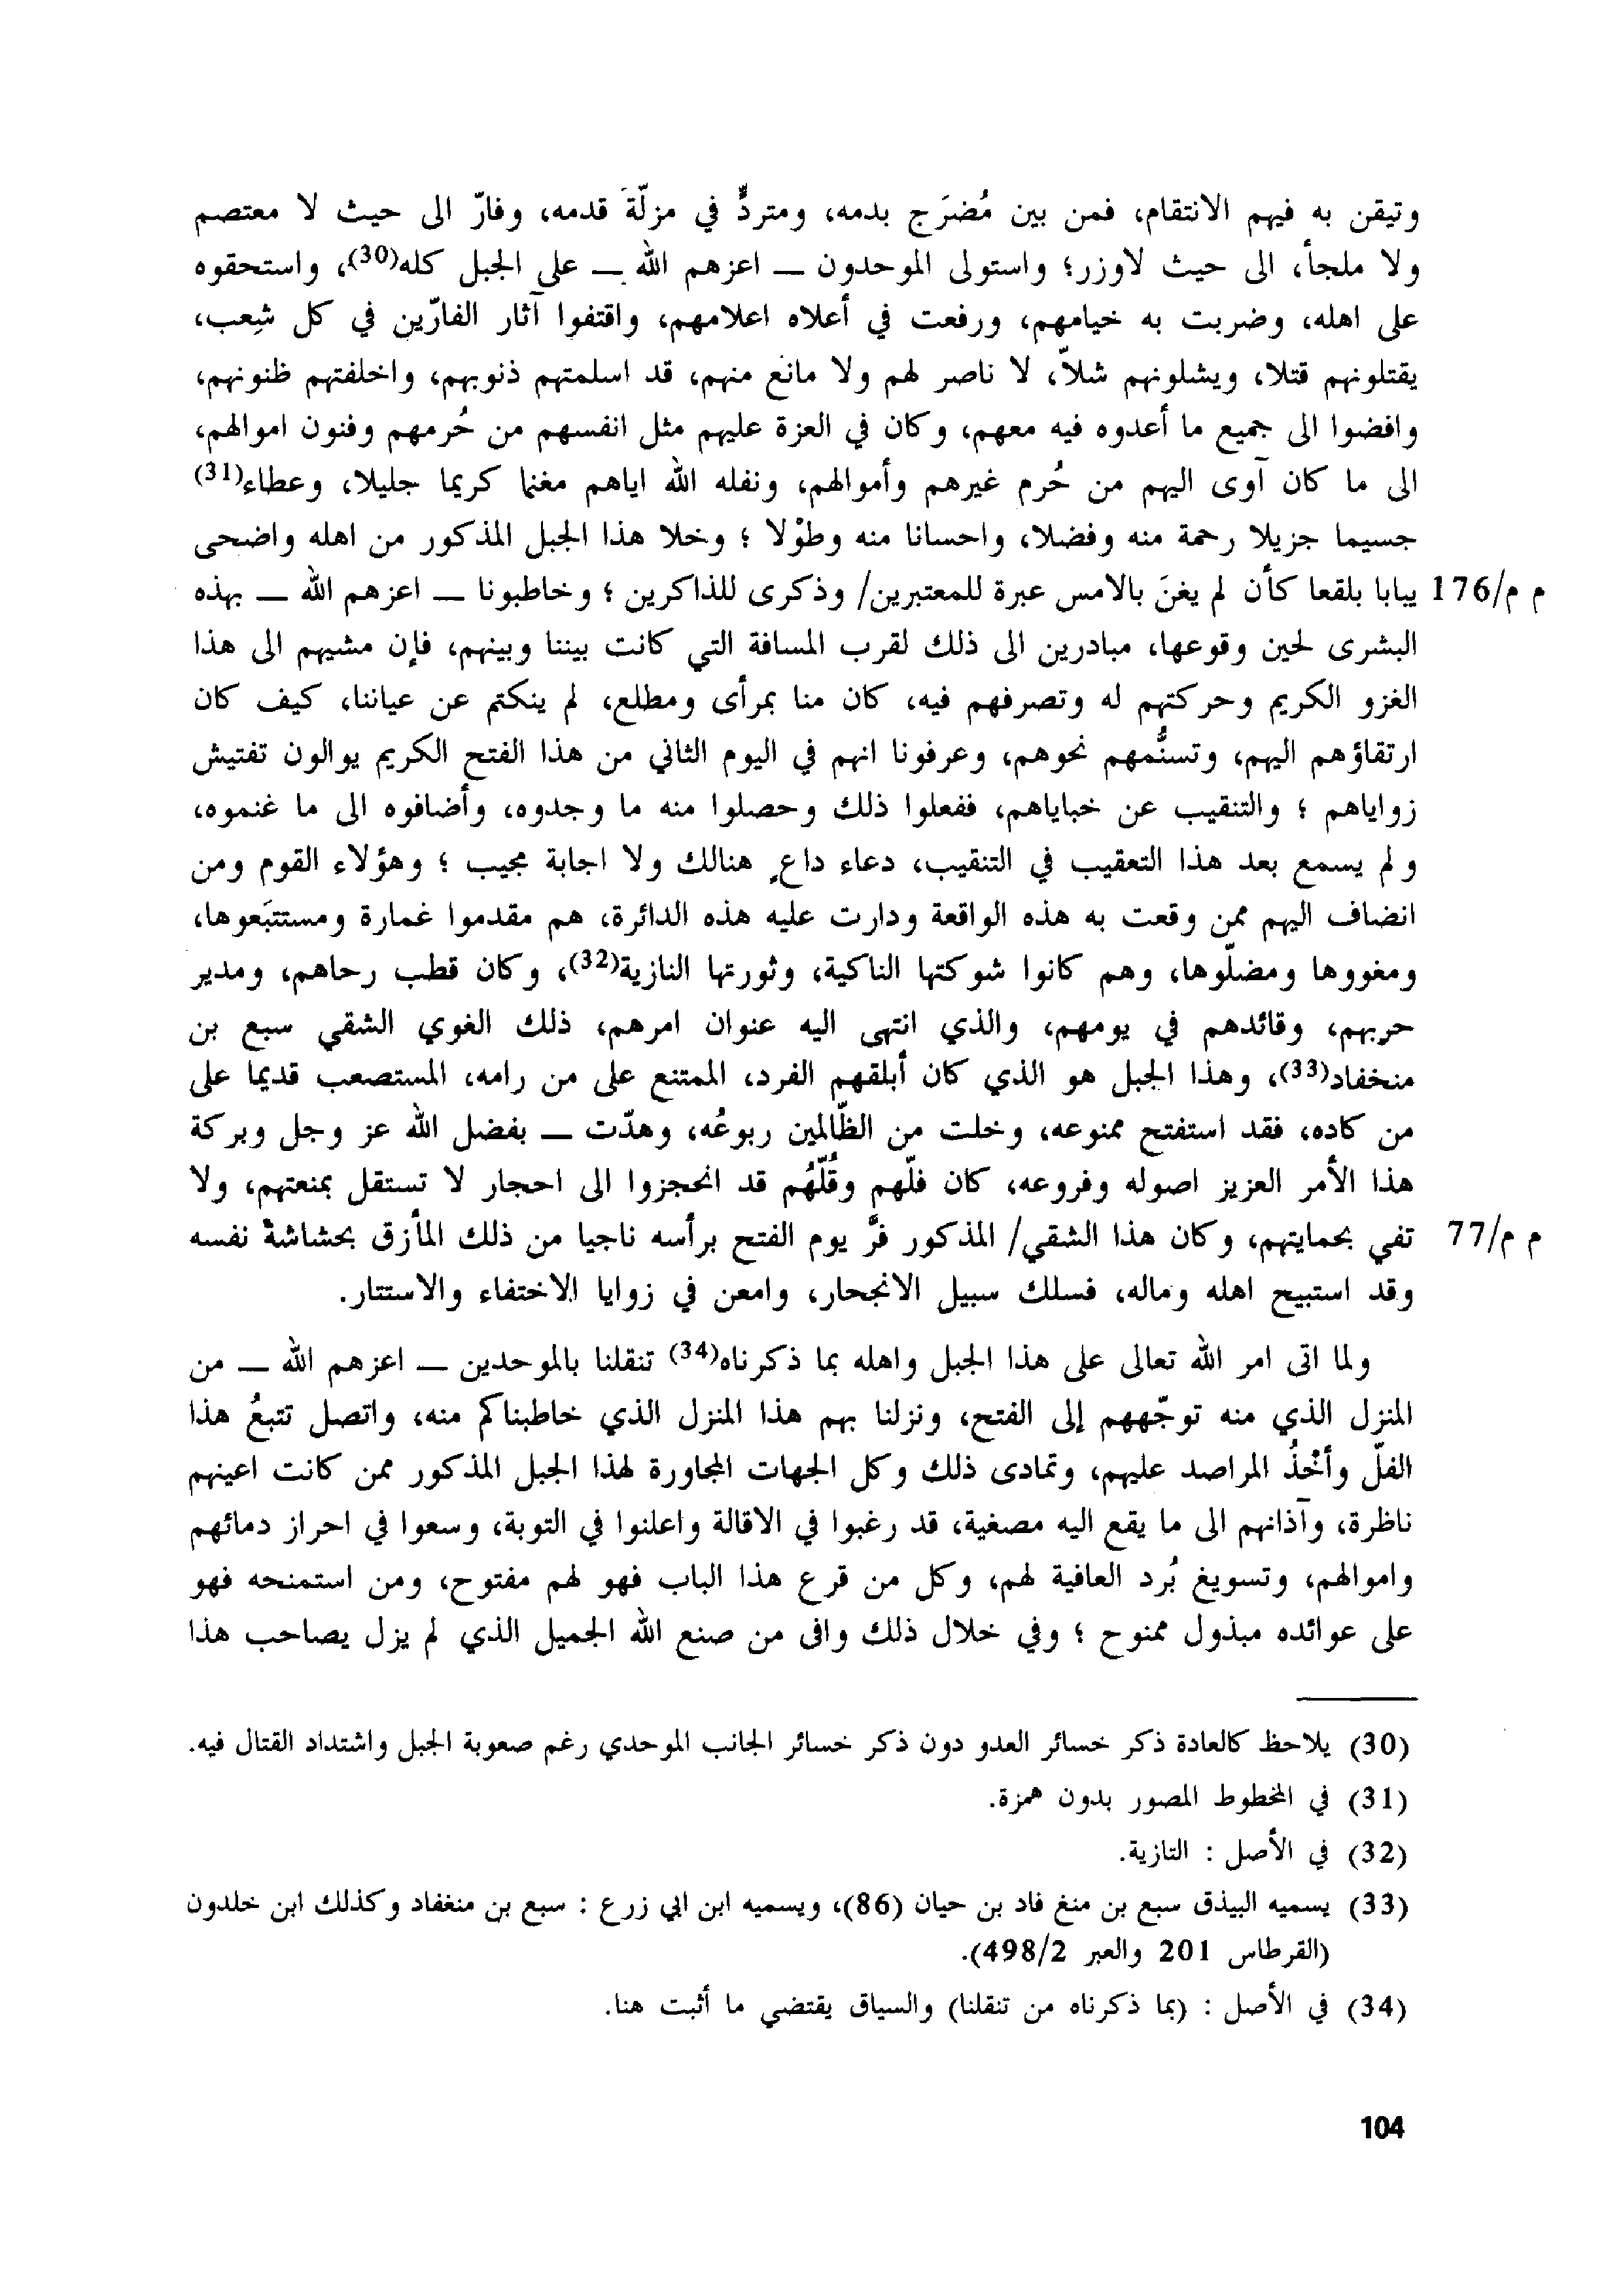 وتيقن به فيهم الانتقام، فمن بين مُضرَج بدمه، ومتردٍّ في مزلّة قدمه، وفارّ الى حيث لا معتصم
ولا ملجأ، الى حيث لاوزر؛ واستولى الموحدون — اعزهم الله — على الجبل كله(30)، واستحقوه
على اهله، وضربت به خيامهم، ورفعت في أعلاه اعلامهم، واقتفوا آثار الفارّين في كل شِعب،
يقتلونهم قتلا، ويشلونهم شلاّ، لا ناصر لهم ولا مانع منهم، قد اسلمتهم ذنوبهم، واخلفتهم ظنونهم،
وافضوا الى جميع ما أعدوه فيه معهم، وكان في العزة عليهم مثل انفسهم من حُرمهم وفنون اموالهم،
الى ما كان آوى اليهم من حُرم غيرهم وأموالهم، ونفله الله اياهم مغنما كريما جليلا، وعطاء(31)
جسيما جزيلا رحمة منه وفضلا، واحسانا منه وطوْلا ؛ وخلا هذا الجبل المذكور من اهله واضحى
م م/176 يبابا بلقعا كأن لم يغنَ بالامس عبرة للمعتبرين/ وذكرى للذاكرين ؛ وخاطبونا — اعزهم الله — بهذه
البشرى لحين وقوعها، مبادرين الى ذلك لقرب المسافة التي كانت بيننا وبينهم، فإن مشيهم الى هذا
الغزو الكريم وحركتهم له وتصرفهم فيه، كان منا بمرأى ومطلع، لم ينكتم عن عياننا، كيف كان
ارتقاؤهم اليهم، وتسنُّمهم نحوهم، وعرفونا انهم في اليوم الثاني من هذا الفتح الكريم يوالون تفتيش
زواياهم ؛ والتنقيب عن خباياهم، ففعلوا ذلك وحصلوا منه ما وجدوه، وأضافوه الى ما غنموه،
ولم يسمع بعد هذا التعقيب في التنقيب، دعاء داعٍ هنالك ولا اجابة مجيب ؛ وهؤلاء القوم ومن
انضاف اليهم ممن وقعت به هذه الواقعة ودارت عليه هذه الدائرة، هم مقدموا غمارة ومستتبَعوها،
ومغووها ومضلّوها، وهم كانوا شوكتها الناكية، وثورتها النازية(32)، وكان قطب رحاهم، ومدير
حربهم، وقائدهم في يومهم، والذي انتهى اليه عنوان امرهم، ذلك الغوي الشقي سبع بن
منخفاد(33)، وهذا الجبل هو الذي كان أبلقهم الفرد، الممتنع على من رامه، المستصعب قديما على
من كاده، فقد استفتح ممنوعه، وخلت من الظّالمين ربوعُه، وهدّت — بفضل الله عز وجل وبركة
هذا الأمر العزيز اصوله وفروعه، كان فلّهم وقُلّهُم قد انحجزوا الى احجار لا تستقل بمنعتهم، ولا
م م/77 تفي بحمايتهم، وكان هذا الشقي/ المذكور فرَّ يوم الفتح برأسه ناجيا من ذلك المأزق بحشاشة نفسه
وقد استبيح اهله وماله، فسلك سبيل الانجحار، وامعن في زوايا الاختفاء والاستتار.
ولما اتى امر الله تعالى على هذا الجبل واهله بما ذكرناه(34) تنقلنا بالموحدين — اعزهم الله — من
المنزل الذي منه توجّههم إلى الفتح، ونزلنا بهم هذا المنزل الذي خاطبناكم منه، واتصل تتبعُ هذا
الفلّ وأخْذُ المراصد عليهم، وتمادى ذلك وكل الجهات المجاورة لهذا الجبل المذكور ممن كانت اعينهم
ناظرة، وآذانهم الى ما يقع اليه مصغية، قد رغبوا في الاقالة واعلنوا في التوبة، وسعوا في احراز دمائهم
واموالهم، وتسويغ بُرد العافية لهم، وكل من قرع هذا الباب فهو لهم مفتوح، ومن استمنحه فهو
على عوائده مبذول ممنوح ؛ وفي خلال ذلك وافى من صنع الله الجميل الذي لم يزل يصاحب هذا
(30) يلاحظ كالعادة ذكر خسائر العدو دون ذكر خسائر الجانب الموحدي رغم صعوبة الجبل واشتداد القتال فيه.
(31) في المخطوط المصور بدون همزة.
(32) في الأصل : التازية.
(33) يسميه البيذق سبع بن منغ فاد بن حيان (86)، ويسميه ابن ابي زرع : سبع بن منغفاد وكذلك ابن خلدون
(القرطاس 201 والعبر 498/2).
(34) في الأصل : (بما ذكرناه من تنقلنا) والسياق يقتضي ما أثبت هنا.
104